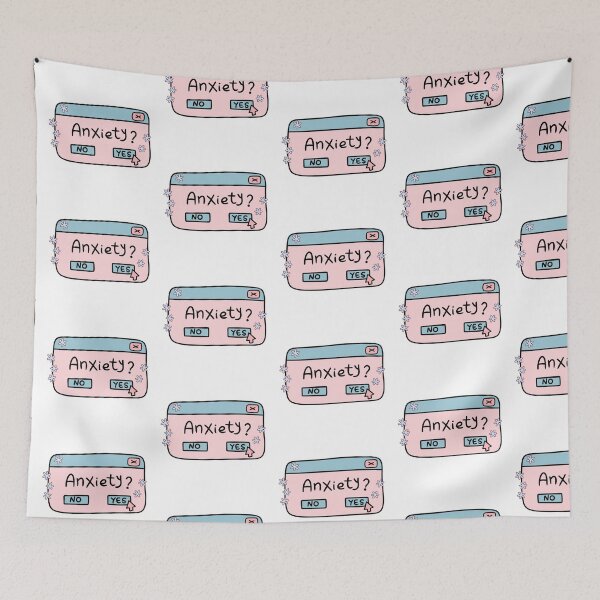 Anxiety?
NO YES
Anxiety?
NO YES
Anxiety?
NO YES
Anxiety?
NO YES
Anxi
NO
Anxiety?
NO YES
Anxiety?
NO YES
Anxiety?
NO YES
Anxiety?
NO YES
Anxi
NO
Anxiety?
NO YES
Anxiety?
NO YES
Anxiety?
NO YES
Anxiety?
NO YES
Anxi
NO
Anxiety?
NO YES
Anxiety?
NO YES
Anxiety?
NO YES
Anxiety?
NO YES
Anxi
NO